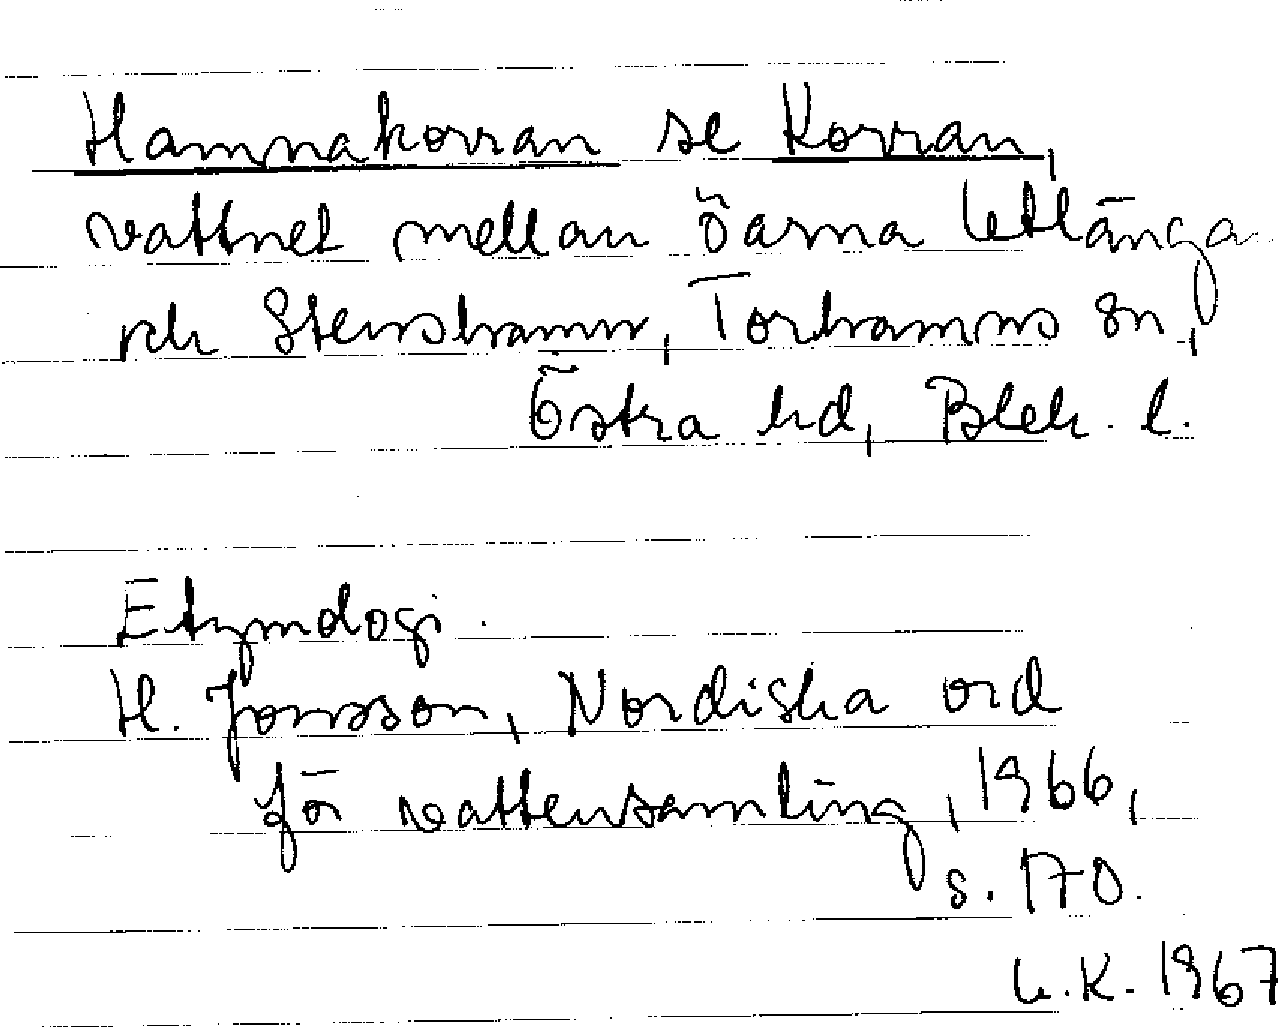 Hamnakorran se Korran,
vattnet mellan öarna Utlänga
och Stenshamn, Torhamns sn,
Östra hd, Blek. l.
Etymologi.
H. Jonsson, Nordiska ord
för vattensamling, 1966,
s. 170.
U.K. 1967